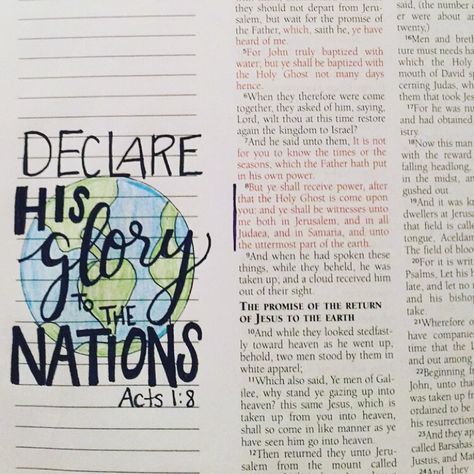 DECLARE
HIS
glory
TO THE
NATIONS
Acts 1:8
they should not depart from Jeru-
salem, but wait for the promise of
the Father, which, saith he, ye have
heard of me.
5For John truly baptized with
water; but ye shall be baptized with
the Holy Ghost not many days
hence.
6When they therefore were come
together, they asked of him, saying,
Lord, wilt thou at this time restore
again the kingdom to Israel?
7And he said unto them, It is not
for you to know the times or the
seasons, which the Father hath put
in his own power.
8But ye shall receive power, after
that the Holy Ghost is come upon
you: and ye shall be witnesses unto
me both in Jerusalem, and in all
Judaea, and in Samaria, and unto
the uttermost part of the earth.
9And when he had spoken these
things, while they beheld, he was
taken up; and a cloud received him
out of their sight.
THE PROMISE OF THE RETURN
OF JESUS TO THE EARTH
10And while they looked stedfast-
ly toward heaven as he went up,
behold, two men stood by them in
white apparel;
11Which also said, Ye men of Gal-
ilee, why stand ye gazing up into
heaven? this same Jesus, which is
taken up from you into heaven,
shall so come in like manner as ye
have seen him go into heaven.
12Then returned they unto Jeru-
salem from the mount called
said, (the number
er were about a
twenty,)
16Men and breth
ture must needs ha
which the Holy
mouth of David s
cerning Judas, wh
them that took Jes
17For he was nu
and had obtained
istry.
18Now this man
with the reward
falling headlong,
in the midst, and
gushed out.
19And it was kn
dwellers at Jerus
that field is calle
tongue, Aceldam
The field of blood
20For it is writ
Psalms, Let his
late, and let no m
and his bishop
take.
21Wherefore of
have companied
time that the L
and out among
22Beginning fr
John, unto that
was taken up fr
ordained to be
his resurrection
23And they ap
called Barsabas
Justus, and Mat
24And they